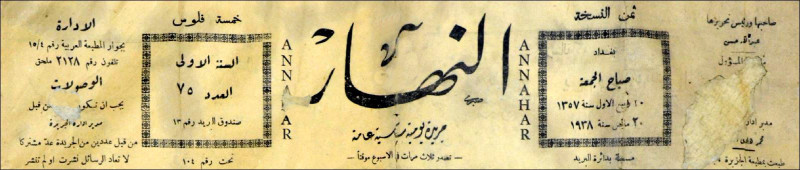 صاحبها ورئيس تحريرها
المسؤول
مدير ادارة
طبعت بمطبعة الجزيرة
ثمن النسخة
بغداد
صباح الجمعة
١٠ ربيع الاول سنة ١٣٥٧
٢٠ مايس سنة ١٩٣٨
مسجلة بدائرة البريد
ANNAHAR
النهار
جريدة يومية سياسية عامة
— تصدر ثلاث مرات في الاسبوع موقتاً —
ANNAHAR
خمسة فلوس
السنة الاولى
العدد ٧٥
صندوق البريد رقم ١٣
تحت رقم ١٠٤
الادارة
بجوار المطبعة العربية رقم ١٥/٤
تلفون رقم ٢١٢٨ ملحق
الوصولات
يجب ان تكون من قبل
مدير ادارة الجريدة
من قبل عددين من الجريدة عد مشتركا
لا تعاد الرسائل نشرت او لم تنشر